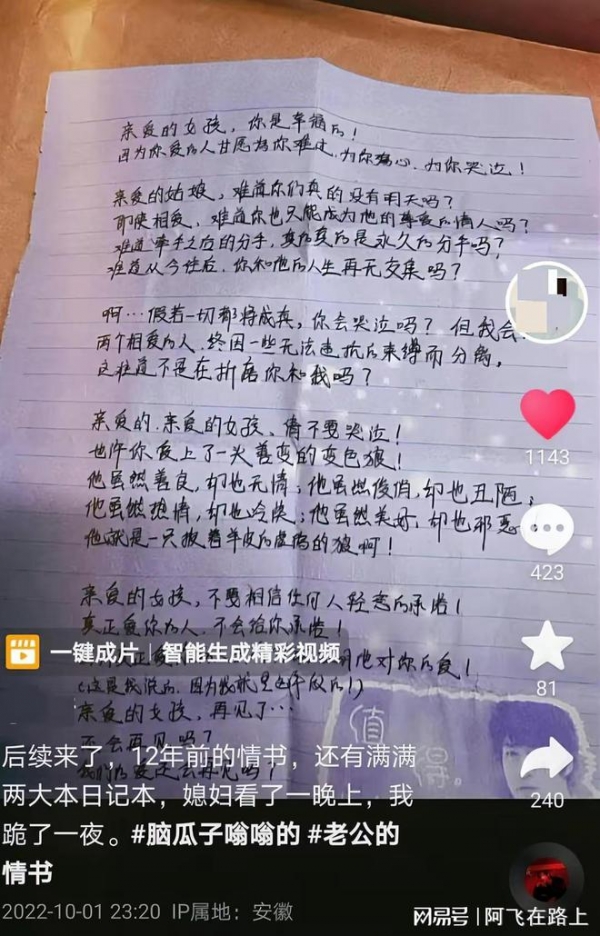 亲爱的女孩，你是幸福的！
因为你爱的人甘愿为你难过、为你痛心、为你哭泣！
亲爱的姑娘，难道你们真的没有明天吗？
即使相爱，难道你也只能成为他的尊爱的情人吗？
难道牵手之后的分手，真的真的是永久的分手吗？
难道从今往后，你和他的人生再无交集吗？
啊…假若一切都将成真，你会哭泣吗？但我会.
两个相爱的人，终因一些无法违抗的束缚而分离，
这难道不是在折磨你和我吗？
亲爱的、亲爱的女孩、请不要哭泣！
也许你爱上了一头善变的变色狼！
他虽然善良，却也无情；他虽然俊俏，却也丑陋；
他虽然热情，却也冷快；他虽然美好，却也邪恶
他就是一只披着羊皮的虚伪的狼啊！
亲爱的女孩，不要相信任何人轻恋的承诺！
真正爱你的人，不会给你承诺！
他对你的爱！
（这是我说的，因为我就是这样做的！）
亲爱的女孩，再见了…
不会再见吗？
我们的爱还会再见吗！
值得
1143
423
81
240
一键成片 | 智能生成精彩视频
后续来了，12年前的情书，还有满满
两大本日记本，媳妇看了一晚上，我
跪了一夜。#脑瓜子嗡嗡的 #老公的
情书
2022-10-01 23:20 IP属地：安徽
网易号 | 阿飞在路上